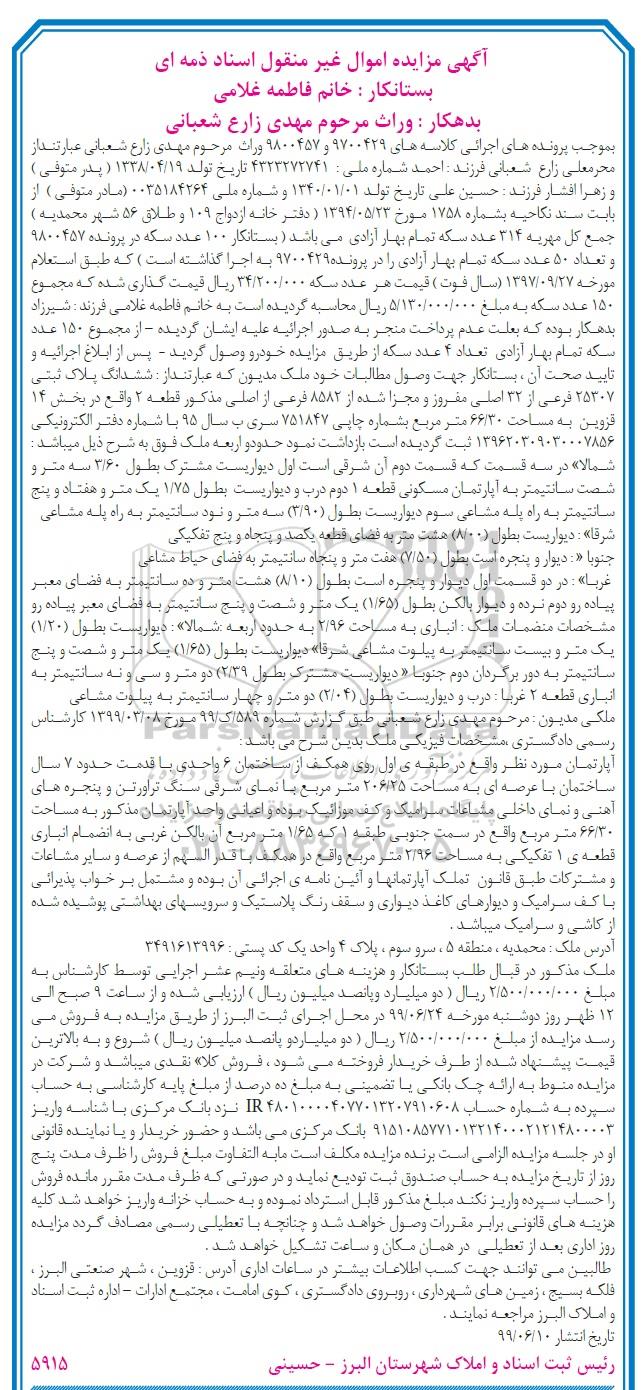 آگهی مزایده اموال غیر منقول اسناد ذمه ای
بستانکار : خانم فاطمه غلامی
بدهکار : وراث مرحوم مهدی زارع شعبانی
بموجب پرونده های اجرائی کلاسه های ۹۷۰۰۴۲۹ و ۹۸۰۰۴۵۷ وراث مرحوم مهدی زارع شعبانی عبارتنداز
محرمعلی زارع شعبانی فرزند : احمد شماره ملی : ۴۳۲۳۲۷۲۷۴۱ تاریخ تولد ۱۳۳۸/۰۴/۱۹ ( پدر متوفی )
و زهرا افشار فرزند : حسین علی تاریخ تولد ۱۳۴۰/۰۱/۰۱ و شماره ملی ۰۰۳۵۱۸۴۲۶۴ (مادر متوفی ) از
بابت سند نکاحیه بشماره ۱۷۵۸ مورخ ۱۳۹۴/۰۵/۲۳ ( دفتر خانه ازدواج ۱۰۹ و طلاق ۵۶ شهر محمدیه )
جمع کل مهریه ۳۱۴ عدد سکه تمام بهار آزادی می باشد ( بستانکار ۱۰۰ عدد سکه در پرونده ۹۸۰۰۴۵۷
و تعداد ۵۰ عدد سکه تمام بهار آزادی را در پرونده۹۷۰۰۴۲۹ به اجرا گذاشته است ) که طبق استعلام
مورخه ۱۳۹۷/۰۹/۲۷ (سال فوت ) قیمت هر عدد سکه ۳۴/۲۰۰/۰۰۰ ریال قیمت گذاری شده که مجموع
۱۵۰ عدد سکه به مبلغ ۵/۱۳۰/۰۰۰/۰۰۰ ریال محاسبه گردیده است به خانم فاطمه غلامی فرزند : شیرزاد
بدهکار بوده که بعلت عدم پرداخت منجر به صدور اجرائیه علیه ایشان گردیده – از مجموع ۱۵۰ عدد
سکه تمام بهار آزادی تعداد ۴ عدد سکه از طریق مزایده خودرو وصول گردید - پس از ابلاغ اجرائیه و
تایید صحت آن ، بستانکار جهت وصول مطالبات خود ملک مدیون که عبارتنداز : ششدانگ پلاک ثبتی
۲۵۳۰۷ فرعی از ۳۲ اصلی مفروز و مجزا شده از ۸۵۸۲ فرعی از اصلی مذکور قطعه ۲ واقع در بخش ۱۴
قزوین به مساحت ۶۶/۳۰ متر مربع بشماره چاپی ۷۵۱۸۴۷ سری ب سال ۹۵ با شماره دفتر الکترونیکی
۱۳۹۶۲۰۳۰۹۰۳۰۰۰۷۸۵۶ ثبت گردیده است بازداشت نمود حدودو اربعه ملک فوق به شرح ذیل میباشد :
شمالا» در سه قسمت که قسمت دوم آن شرقی است اول دیواریست مشترک بطول ۳/۶۰ سه متر و
شصت سانتیمتر به آپارتمان مسکونی قطعه ۱ دوم درب و دیواریست بطول ۱/۷۵ یک متر و هفتاد و پنج
سانتیمتر به راه پله مشاعی سوم دیواریست بطول (۳/۹۰) سه متر و نود سانتیمتر به راه پله مشاعی
شرقا» : دیواریست بطول (۸/۰۰) هشت متر به فضای قطعه یکصد و پنجاه و پنج تفکیکی
جنوبا « : دیوار و پنجره است بطول (۷/۵۰) هفت متر و پنجاه سانتیمتر به فضای حیاط مشاعی
غربا» : در دو قسمت اول دیوار و پنجره است بطول (۸/۱۰) هشت متر و ده سانتیمتر به فضای معبر
پیاده رو دوم نرده و دیوار بالکن بطول (۱/۶۵) یک متر و شصت و پنج سانتیمتر به فضای معبر پیاده رو
مشخصات منضمات ملک : انباری به مساحت ۲/۹۶ به حدود اربعه :شمالا» : دیواریست بطول (۱/۲۰)
یک متر و بیست سانتیمتر به پیلوت مشاعی شرقا» دیواریست بطول (۱/۶۵) یک متر و شصت و پنج
سانتیمتر به دور برگردان دوم جنوبا « دیواریست مشترک بطول ۲/۳۹) دو متر و سی و نه سانتیمتر به
انباری قطعه ۲ غربا : درب و دیواریست بطول (۲/۰۴) دو متر و چهار سانتیمتر به پیلوت مشاعی
ملکی مدیون : مرحوم مهدی زارع شعبانی طبق گزارش شماره ۵۸۹/ک/۹۹ مورخ ۱۳۹۹/۰۳/۰۸ کارشناس
رسمی دادگستری ،مشخصات فیزیکی ملک بدین شرح می باشد :
آپارتمان مورد نظر واقع در طبقه ی اول روی همکف از ساختمان ۶ واحدی با قدمت حدود ۷ سال
ساختمان با عرصه ای به مساحت ۲۰۶/۲۵ متر مربع با نمای شرقی سنگ تراورتن و پنجره های
آهنی و نمای داخلی مشاعات سرامیک و کف موزائیک بوده و اعیانی واحد آپارتمان مذکور به مساحت
۶۶/۳۰ متر مربع واقع در سمت جنوبی طبقه ۱ که ۱/۶۵ متر مربع آن بالکن غربی به انضمام انباری
قطعه ی ۱ تفکیکی به مساحت ۲/۹۶ متر مربع واقع در همکف با قدر السهم از عرصه و سایر مشاعات
و مشترکات طبق قانون تملک آپارتمانها و آئین نامه ی اجرائی آن بوده و مشتمل بر خواب پذیرائی
با کف سرامیک و دیوارهای کاغذ دیواری و سقف رنگ پلاستیک و سرویسهای بهداشتی پوشیده شده
از کاشی و سرامیک میباشد .
آدرس ملک : محمدیه ، منطقه ۵ ، سرو سوم ، پلاک ۴ واحد یک کد پستی : ۳۴۹۱۶۱۳۹۹۶
ملک مذکور در قبال طلب بستانکار و هزینه های متعلقه ونیم عشر اجرایی توسط کارشناس به
مبلغ ۲/۵۰۰/۰۰۰/۰۰۰ ریال ( دو میلیارد وپانصد میلیون ریال ) ارزیابی شده و از ساعت ۹ صبح الی
۱۲ ظهر روز دوشنبه مورخه ۹۹/۰۶/۲۴ در محل اجرای ثبت البرز از طریق مزایده به فروش می
رسد مزایده از مبلغ ۲/۵۰۰/۰۰۰/۰۰۰ ریال ( دو میلیاردو پانصد میلیون ریال ) شروع و به بالاترین
قیمت پیشنهاد شده از طرف خریدار فروخته می شود ، فروش کلا» نقدی میباشد و شرکت در
مزایده منوط به ارائه چک بانکی یا تضمینی به مبلغ ده درصد از مبلغ پایه کارشناسی به حساب
سپرده به شماره حساب IR ۴۸۰۱۰۰۰۰۴۰۷۷۰۱۳۲۰۷۹۱۰۶۰۸ نزد بانک مرکزی با شناسه واریز
۹۱۵۱۰۸۵۷۷۱۰۱۳۲۱۴۰۰۰۲۱۲۱۴۸۰۰۰۰۳ بانک مرکزی می باشد و حضور خریدار و یا نماینده قانونی
او در جلسه مزایده الزامی است برنده مزایده مکلف است مابه التفاوت مبلغ فروش را ظرف مدت پنج
روز از تاریخ مزایده به حساب صندوق ثبت تودیع نماید و در صورتی که ظرف مدت مقرر مانده فروش
را حساب سپرده واریز نکند مبلغ مذکور قابل استرداد نموده و به حساب خزانه واریز خواهد شد کلیه
هزینه های قانونی برابر مقررات وصول خواهد شد و چنانچه با تعطیلی رسمی مصادف گردد مزایده
روز اداری بعد از تعطیلی در همان مکان و ساعت تشکیل خواهد شد .
طالبین می توانند جهت کسب اطلاعات بیشتر در ساعات اداری آدرس : قزوین ، شهر صنعتی البرز ،
فلکه بسیج ، زمین های شهرداری ، روبروی دادگستری ، کوی امامت ، مجتمع ادارات – اداره ثبت اسناد
و املاک البرز مراجعه نمایند .
تاریخ انتشار ۹۹/۰۶/۱۰
رئیس ثبت اسناد و املاک شهرستان البرز – حسینی ۵۹۱۵